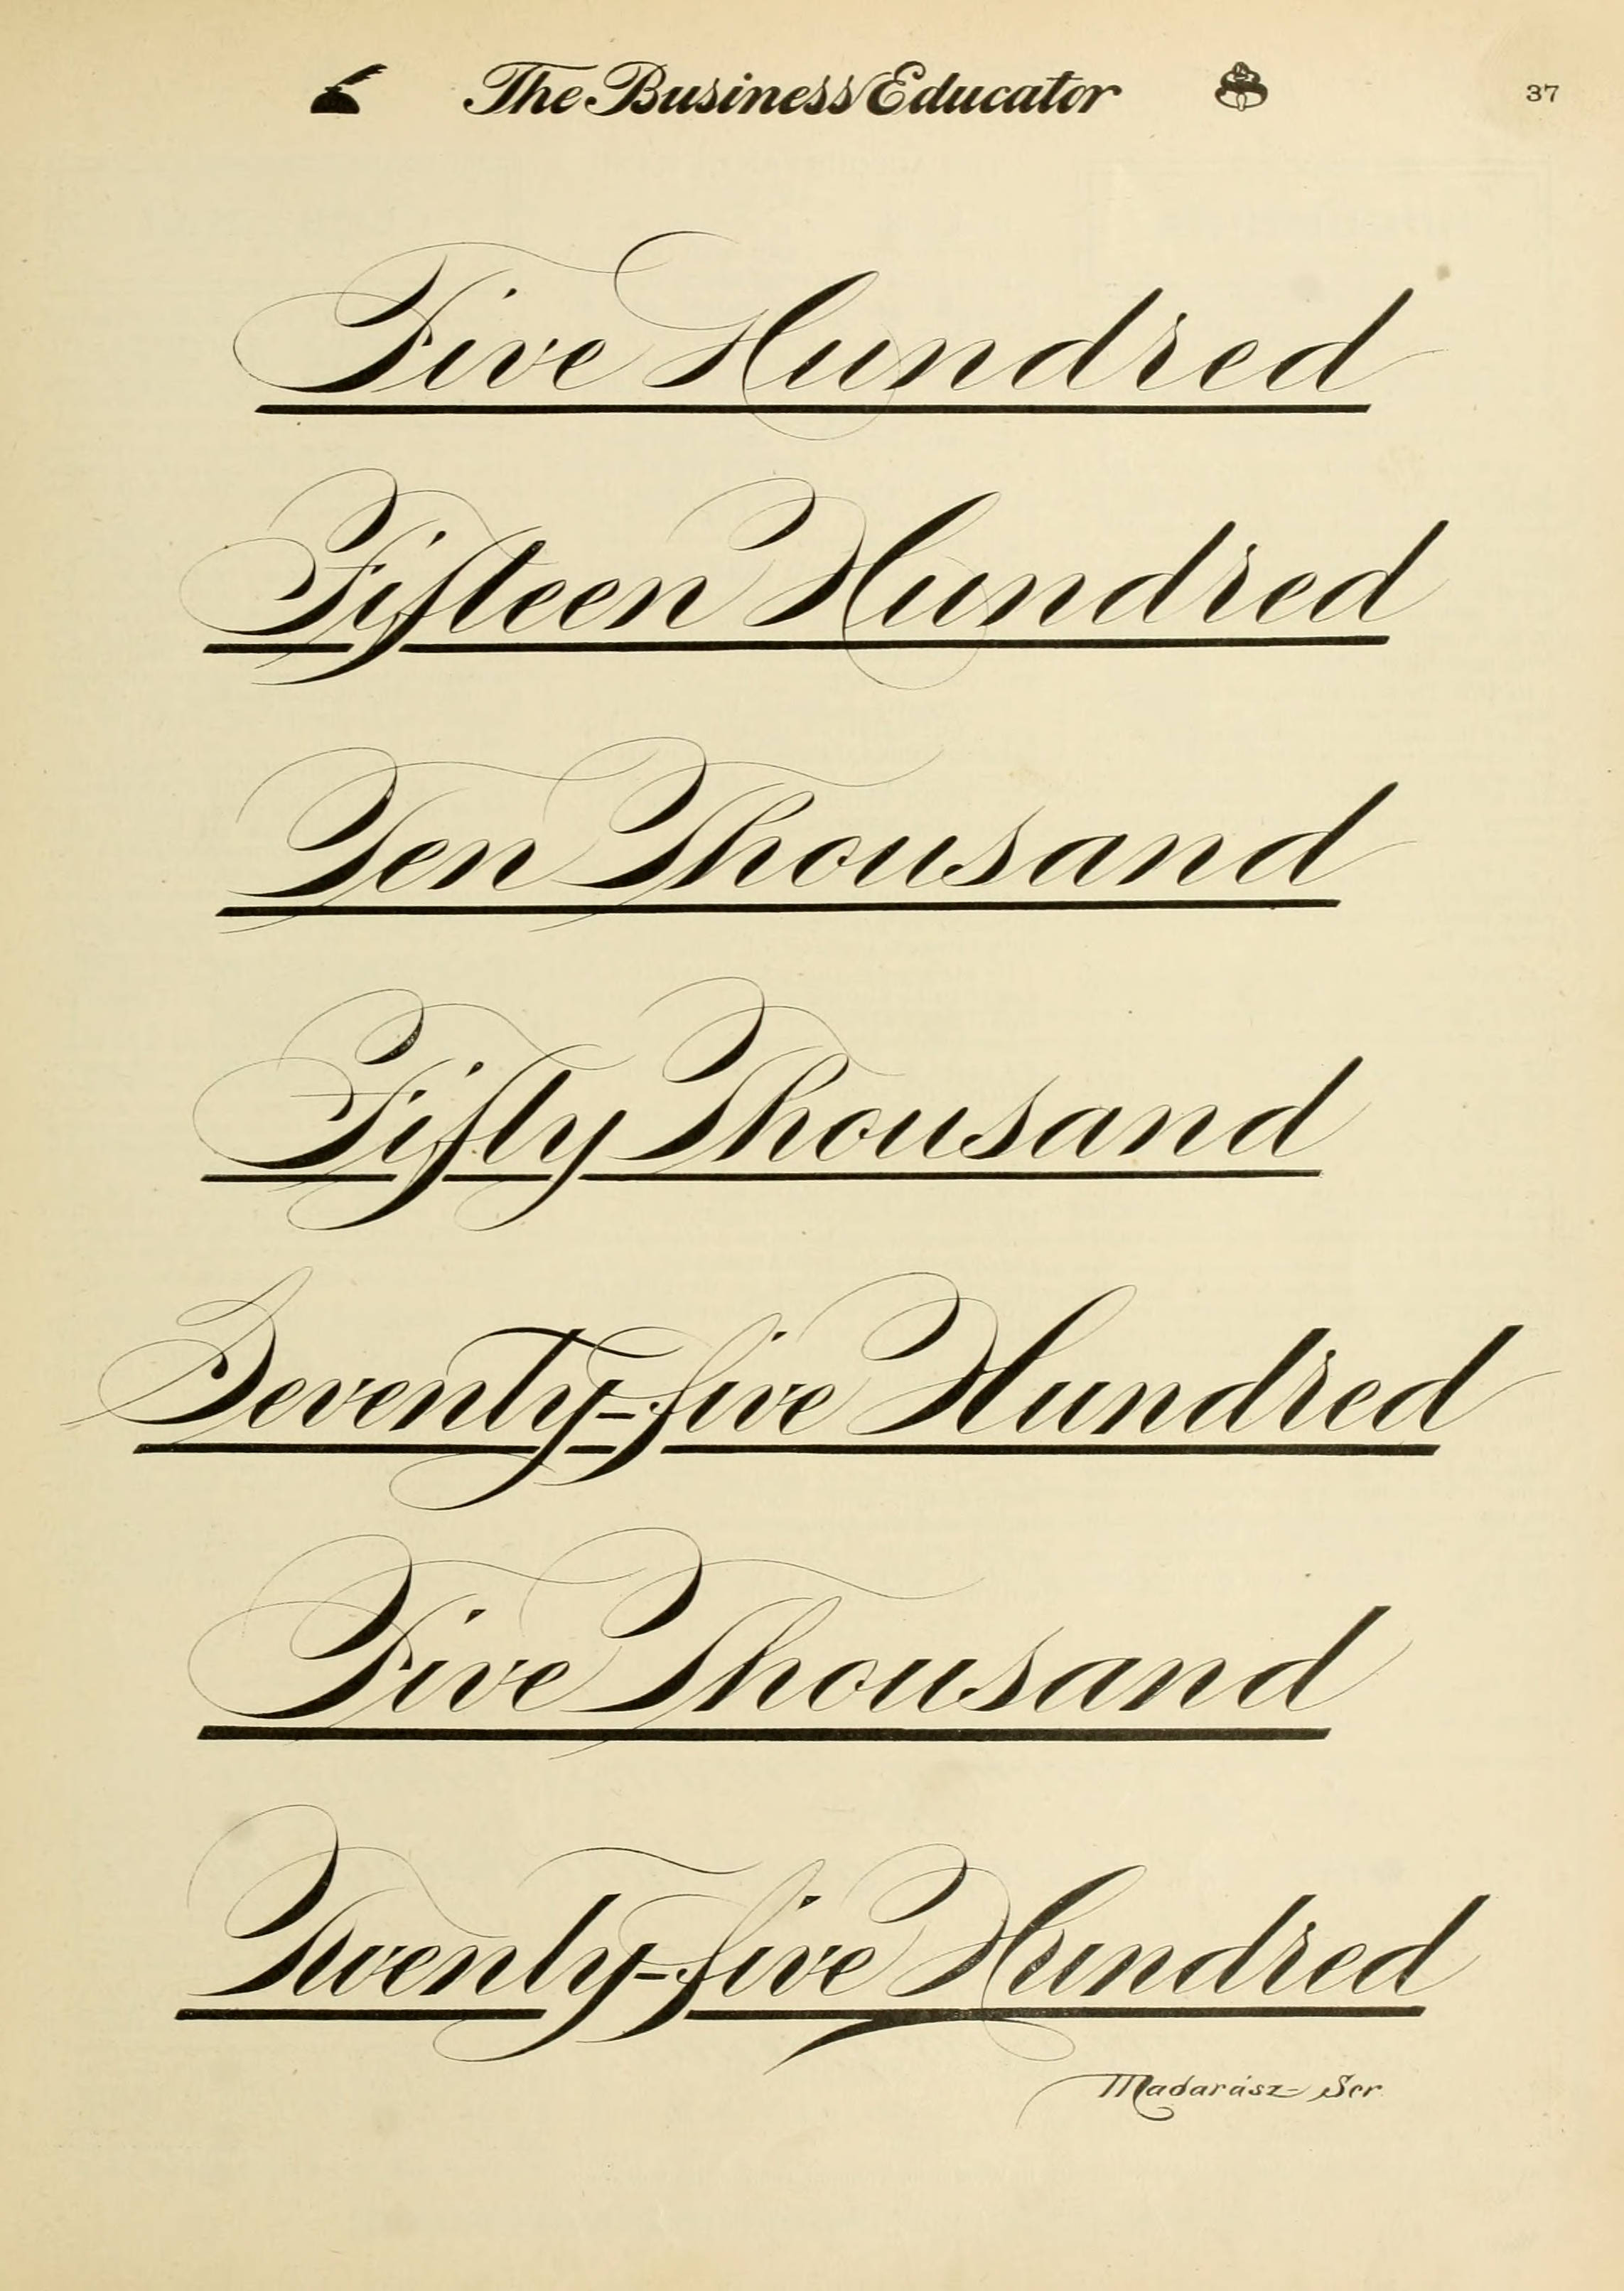 The Business Educator 37
Five Hundred
Fifteen Hundred
Ten Thousand
Fifty Thousand
Seventy-five Hundred
Five Thousand
Twenty-five Hundred
Madarász Scr